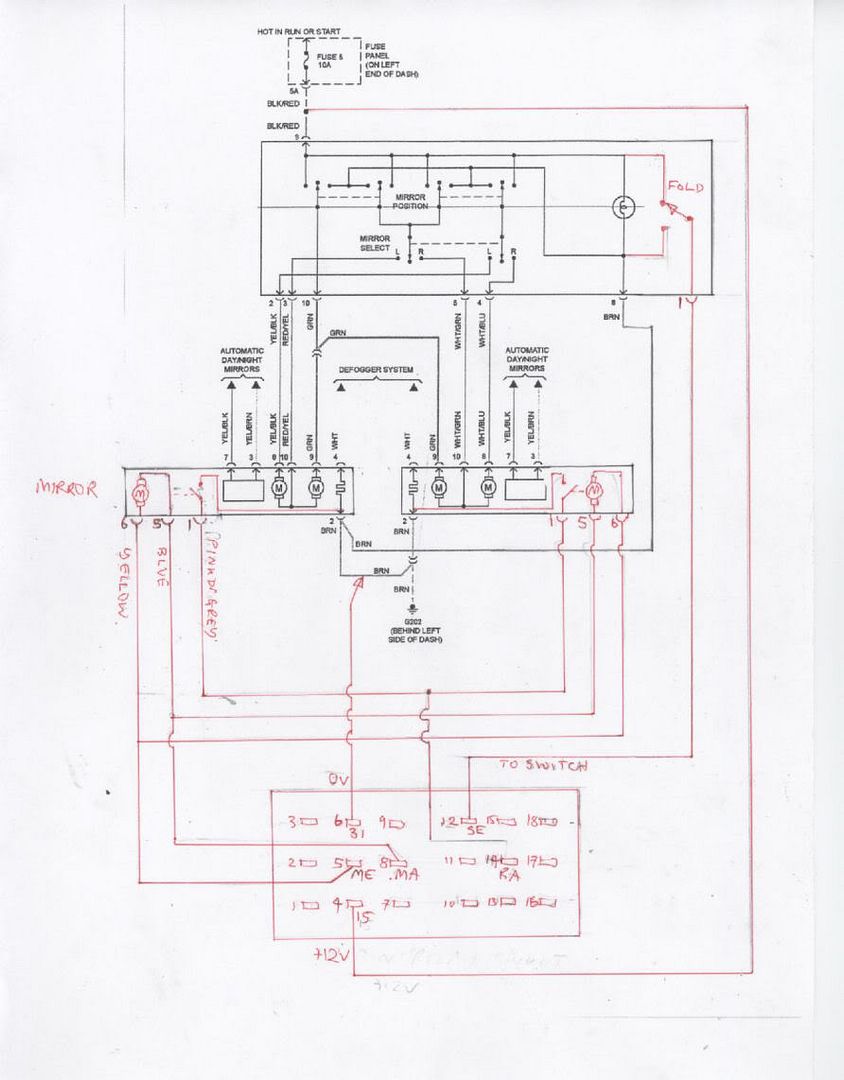 HOT IN RUN OR START
FUSE 5
10A
FUSE
PANEL
(ON LEFT
END OF DASH)
5A
BLK/RED
BLK/RED
9
FOLD
MIRROR
POSITION
MIRROR
SELECT
L
R
L
R
2
3
10
5
4
8
1
YEL/BLK
RED/YEL
GRN
GRN
WHT/GRN
WHT/BLU
BRN
AUTOMATIC
DAY/NIGHT
MIRRORS
DEFOGGER SYSTEM
AUTOMATIC
DAY/NIGHT
MIRRORS
YEL/BLK
YEL/BRN
YEL/BLK
RED/YEL
GRN
WHT
WHT
GRN
WHT/GRN
WHT/BLU
YEL/BLK
YEL/BRN
7
3
8
10
9
4
4
9
10
8
7
3
MIRROR
M
M
M
M
M
M
6
5
1
2
2
1
5
6
BRN
BRN
BRN
BRN
BRN
YELLOW
BLUE
G202
(BEHIND LEFT
SIDE OF DASH)
TO SWITCH
0V
3
6
9
12
15
18
31
SE
2
5
8
11
14
17
ME
MA
RA
1
4
7
10
13
16
15
+12V
+12V